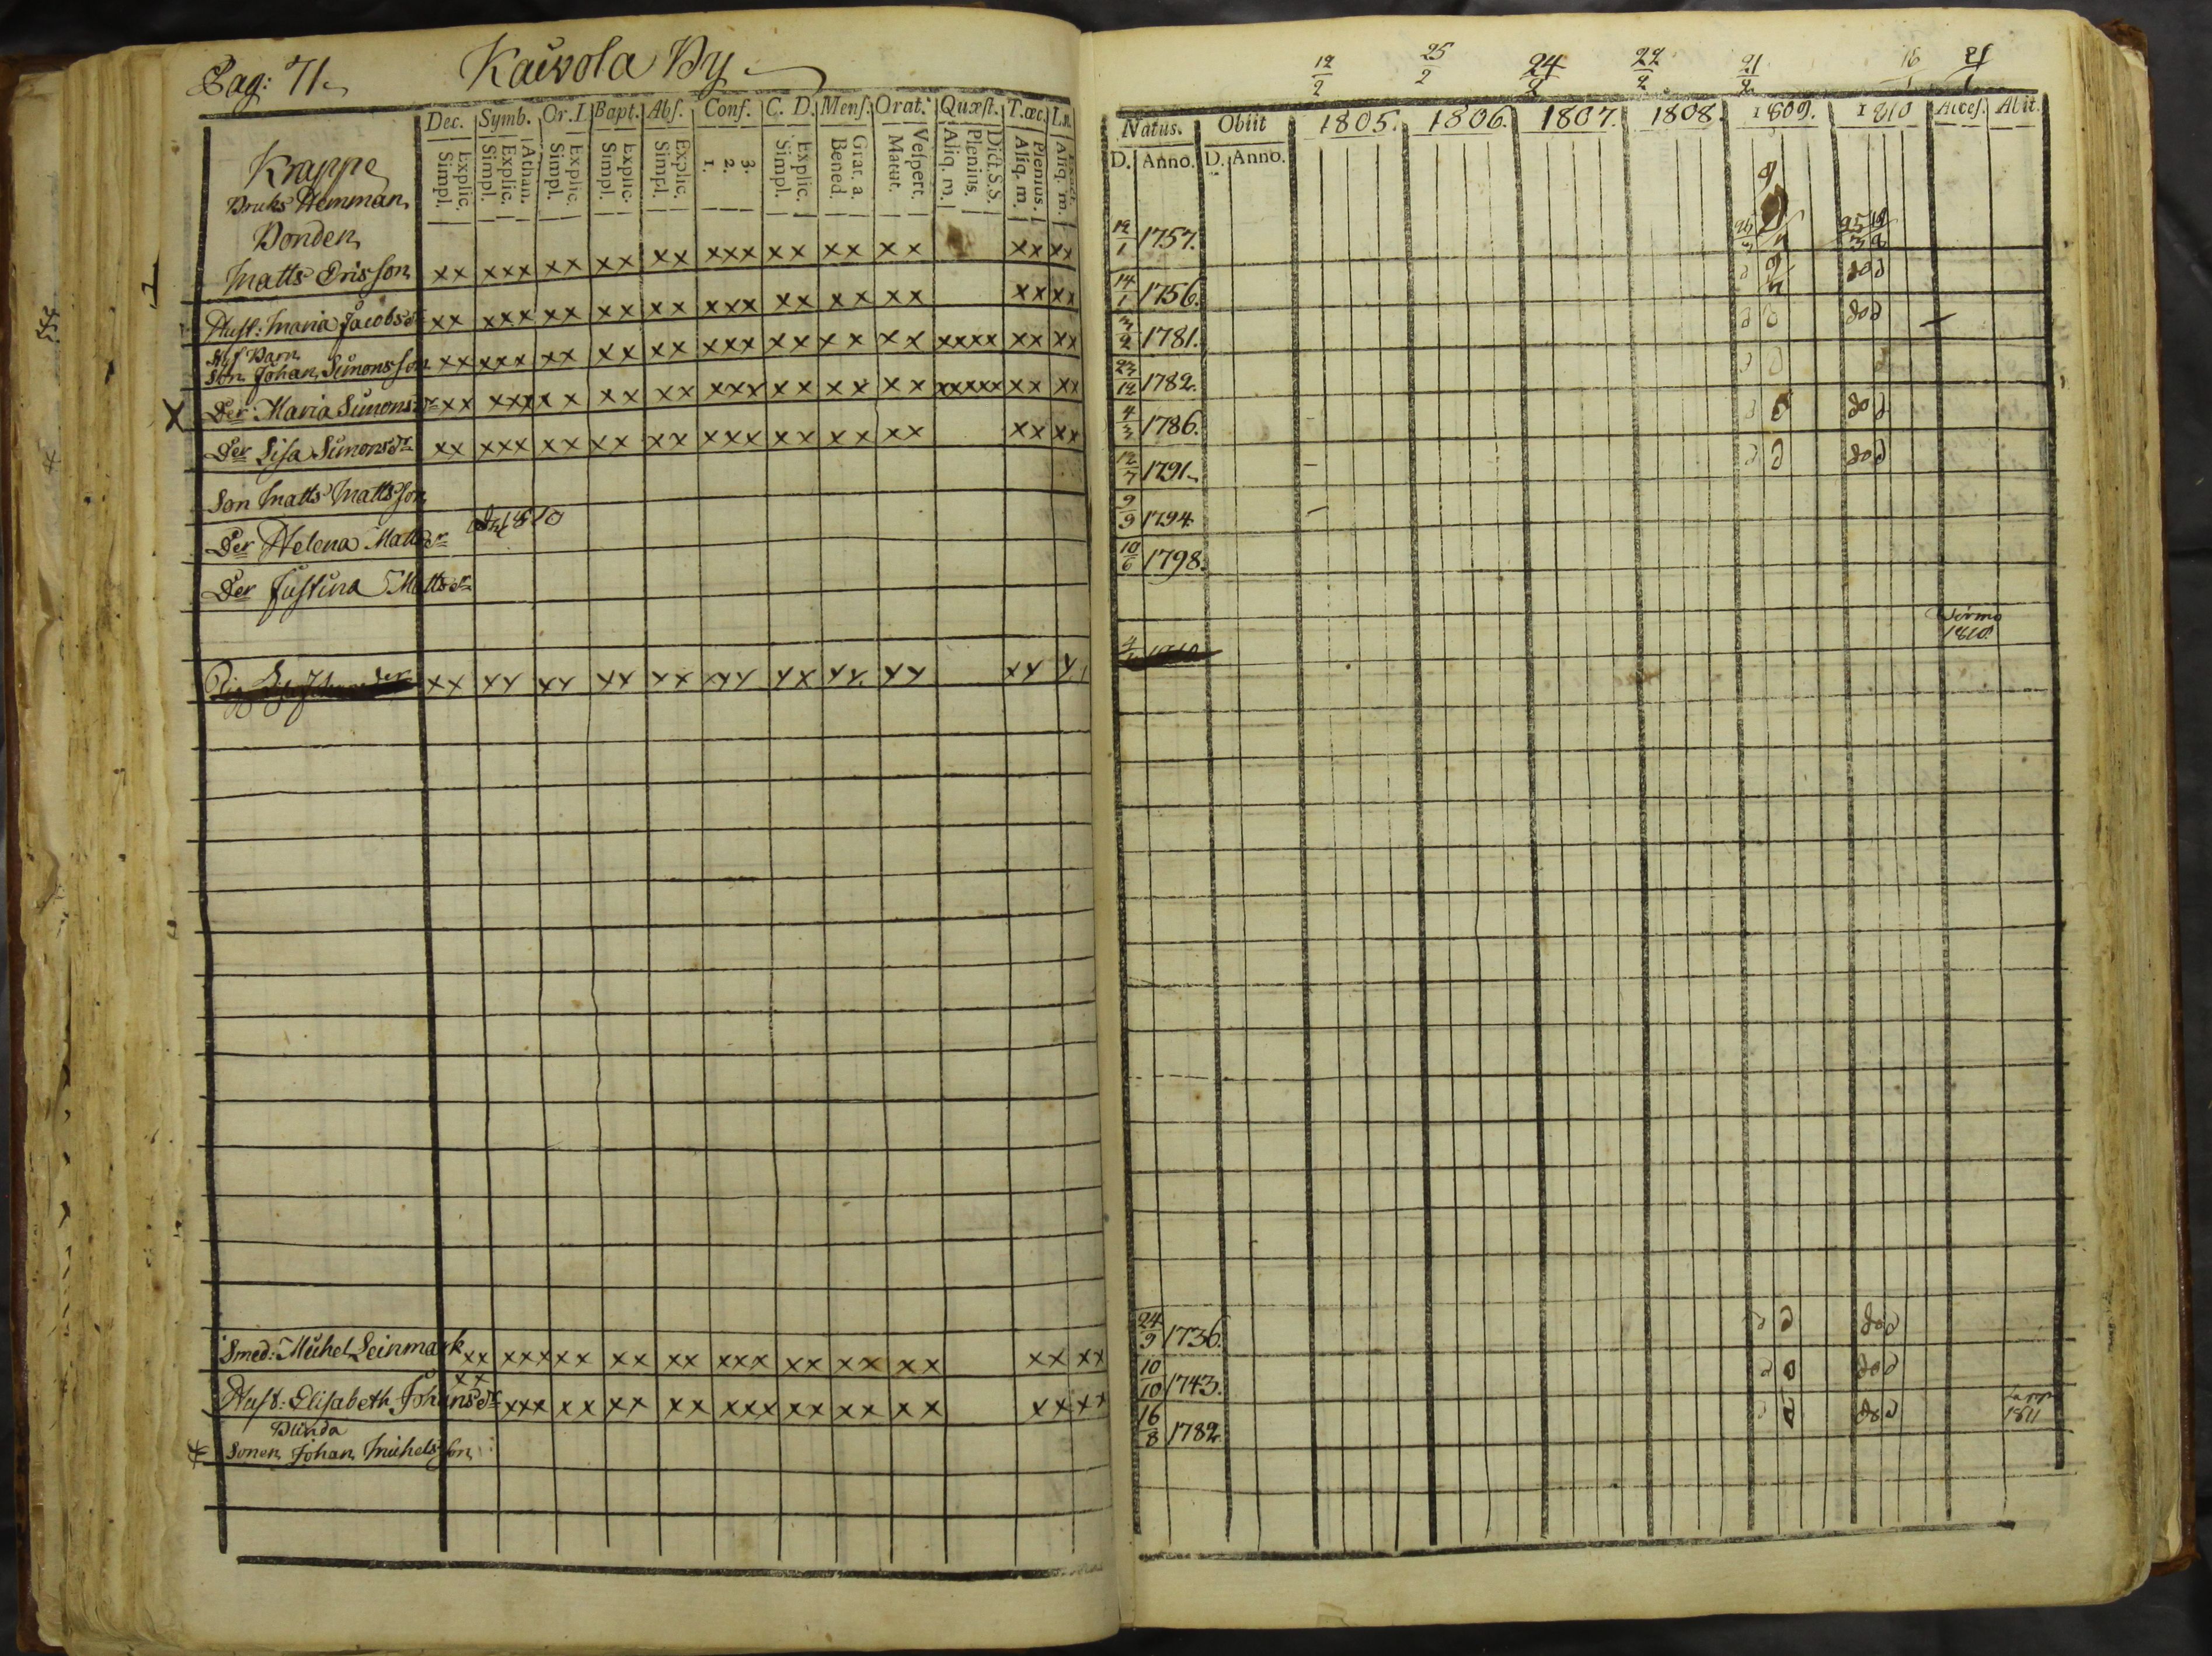 Pag: 71. Kaivola By
Dec. Symb. Or.D. Bapt. Abſ. Conf. C. D. Menſ. Orat. Quæſt. T.œc.
Explic. Simpl. Athan. Explic. Simpl. Explic. Simpl. Explic. Simpl. Explic. Simpl. 3. 2. 1. Explic. Simpl. Grat. a. Bened. Veſpert. Matut. Dict.S.S. Plenius. Aliq. m. Plenius. Aliq. m. Aliq. m.
Krappe
Bruks Hemman
Bonden
Matts Ersson xx xxx xx xx xx xxx xx xx xx xx xx
Hust: Maria Jacobsdr xx xxx xx xx xx xxx xx xx xx xx xx
Barn
Son Johan Simonsson xx xxx xx xx xx xxx xx xx xx xxxx xx xx
Der: Maria Simonsdr xx xxx xx xx xx xxx xx xx xx xxxxx xx xx
Der Lisa Simonsdr xx xxx xx xx xx xxx xx xx xx xx xx
Son Matts Mattsson
Der Helena Mattsdr 1810
Der Justina Mattsdr
xx xx xx xx xx xxx xx xx xx xx
Smed: Michel Leinmark xx xxx xx xx xx xxx xx xx xx xx xx
Hust: Elisabeth Johansdr xx xxx xx xx xx xxx xx xx xx xx xx
Blinda
Sonen Johan Michelsson
12/2 25/2 24/2 22/2 21/2
Natus. Obiit 1805. 1806. 1807. 1808. 1809. 1810 Acceſ. Abit.
D. Anno. D. Anno.
12/1 1757.
14/1 1756.
3/2 1781.
23/12 1782.
4/3 1786.
12/7 1791.
9/9 1794
10/6 1798.
1810
24/9 1736.
10/10 1743.
16/8 1782.
1811